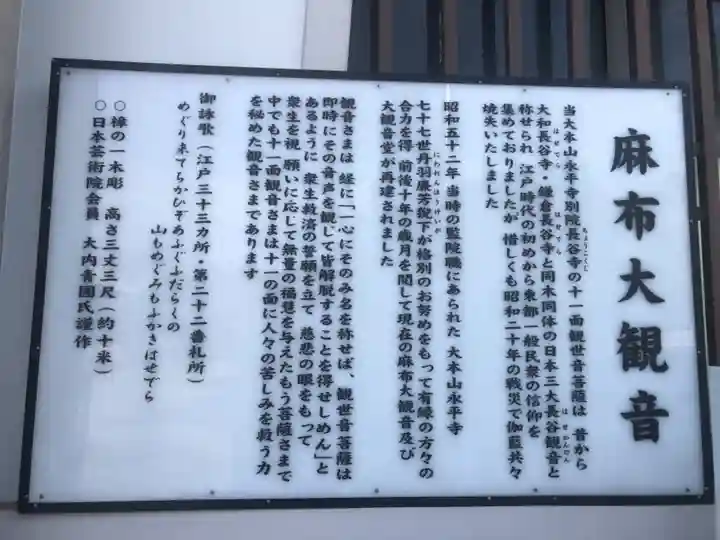 麻布大観音
当大本山永平寺別院長谷寺の十一面観世音菩薩は 昔から
ちょうこくじ
大和長谷寺・鎌倉長谷寺と同木同体の日本三大長谷観音と
はせでら
はせでら
はせかんのん
称せられ 江戸時代の初めから東都一般民衆の信仰を
集めておりましたが 惜しくも昭和二十年の戦災で伽藍共々
焼失いたしました
昭和五十二年 当時の監院職にあられた 大本山永平寺
七十七世丹羽廉芳猊下が格別のお努めをもって有縁の方々の
にわれんぽうげいか
合力を得 前後十年の歳月を閲して現在の麻布大観音及び
大観音堂が再建されました
観音さまは 経に「一心にそのみ名を称せば、観世音菩薩は
即時にその音声を観じて皆解脱することを得せしめん」と
あるように 衆生救済の誓願を立て 慈悲の眼をもって
衆生を視 願いに応じて無量の福慧を与えたもう菩薩さまで
中でも十一面観音さまは十一の面に人々の苦しみを救う力
を秘めた観音さまであります
御詠歌(江戸三十三カ所・第二十二番札所)
めぐり来てちかひぞあふぐふだらくの
山もめぐみもふかきはせでら
○樟の一木彫 高さ三丈三尺(約十米)
○日本芸術院会員 大内青圃氏謹作